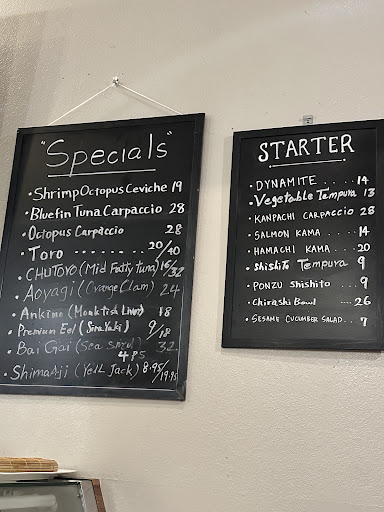 "Specials"
• Shrimp Octopus Ceviche 19
• Bluefin Tuna Carpaccio 28
• Octopus Carpaccio 28
• Toro .......... 20/40
• CHUTOYO (Mid Fatty tuna) 16/32
• Aoyagi (Orange Clam) 24
• Ankimo (Monktish Liver) 18
• Premium Eel (Sirayaki) 9/18
• Bai Gai (Sea Snail) 32
4 PS
• Shima Aji (Yell Jack) 8.95/19.95
STARTER
• DYNAMITE .... 14
• Vegetable Tempura 13
• KANPACHI CARPACCIO 28
• SALMON KAMA .... 14
• HAMACHI KAMA .... 20
• Shishito Tempura 9
• PONZU Shishito .... 9
• Chirashi Bowl .... 26
• SESAME CUCUMBER SALAD .. 7